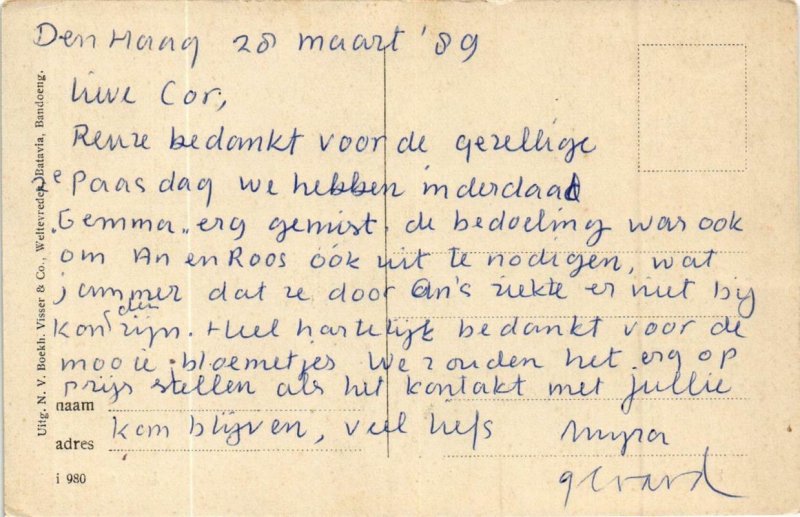 Den Haag 28 maart '89
Lieve Cor,
Reuze bedankt voor de gezellige
2e Paasdag we hebben inderdaad
"Gemma" erg gemist. de bedoeling was ook
om An en Roos óók uit te nodigen, wat
jammer dat ze door An's ziekte er niet bij
konden zijn. Heel hartelijk bedankt voor de
mooie bloemetjes We zouden het erg op
prijs stellen als het kontakt met jullie
naam
kon blijven, veel liefs Myra
adres
gerard
i 980
Uitg. N. V. Boekh. Visser & Co., Weltevreden, Batavia, Bandoeng.